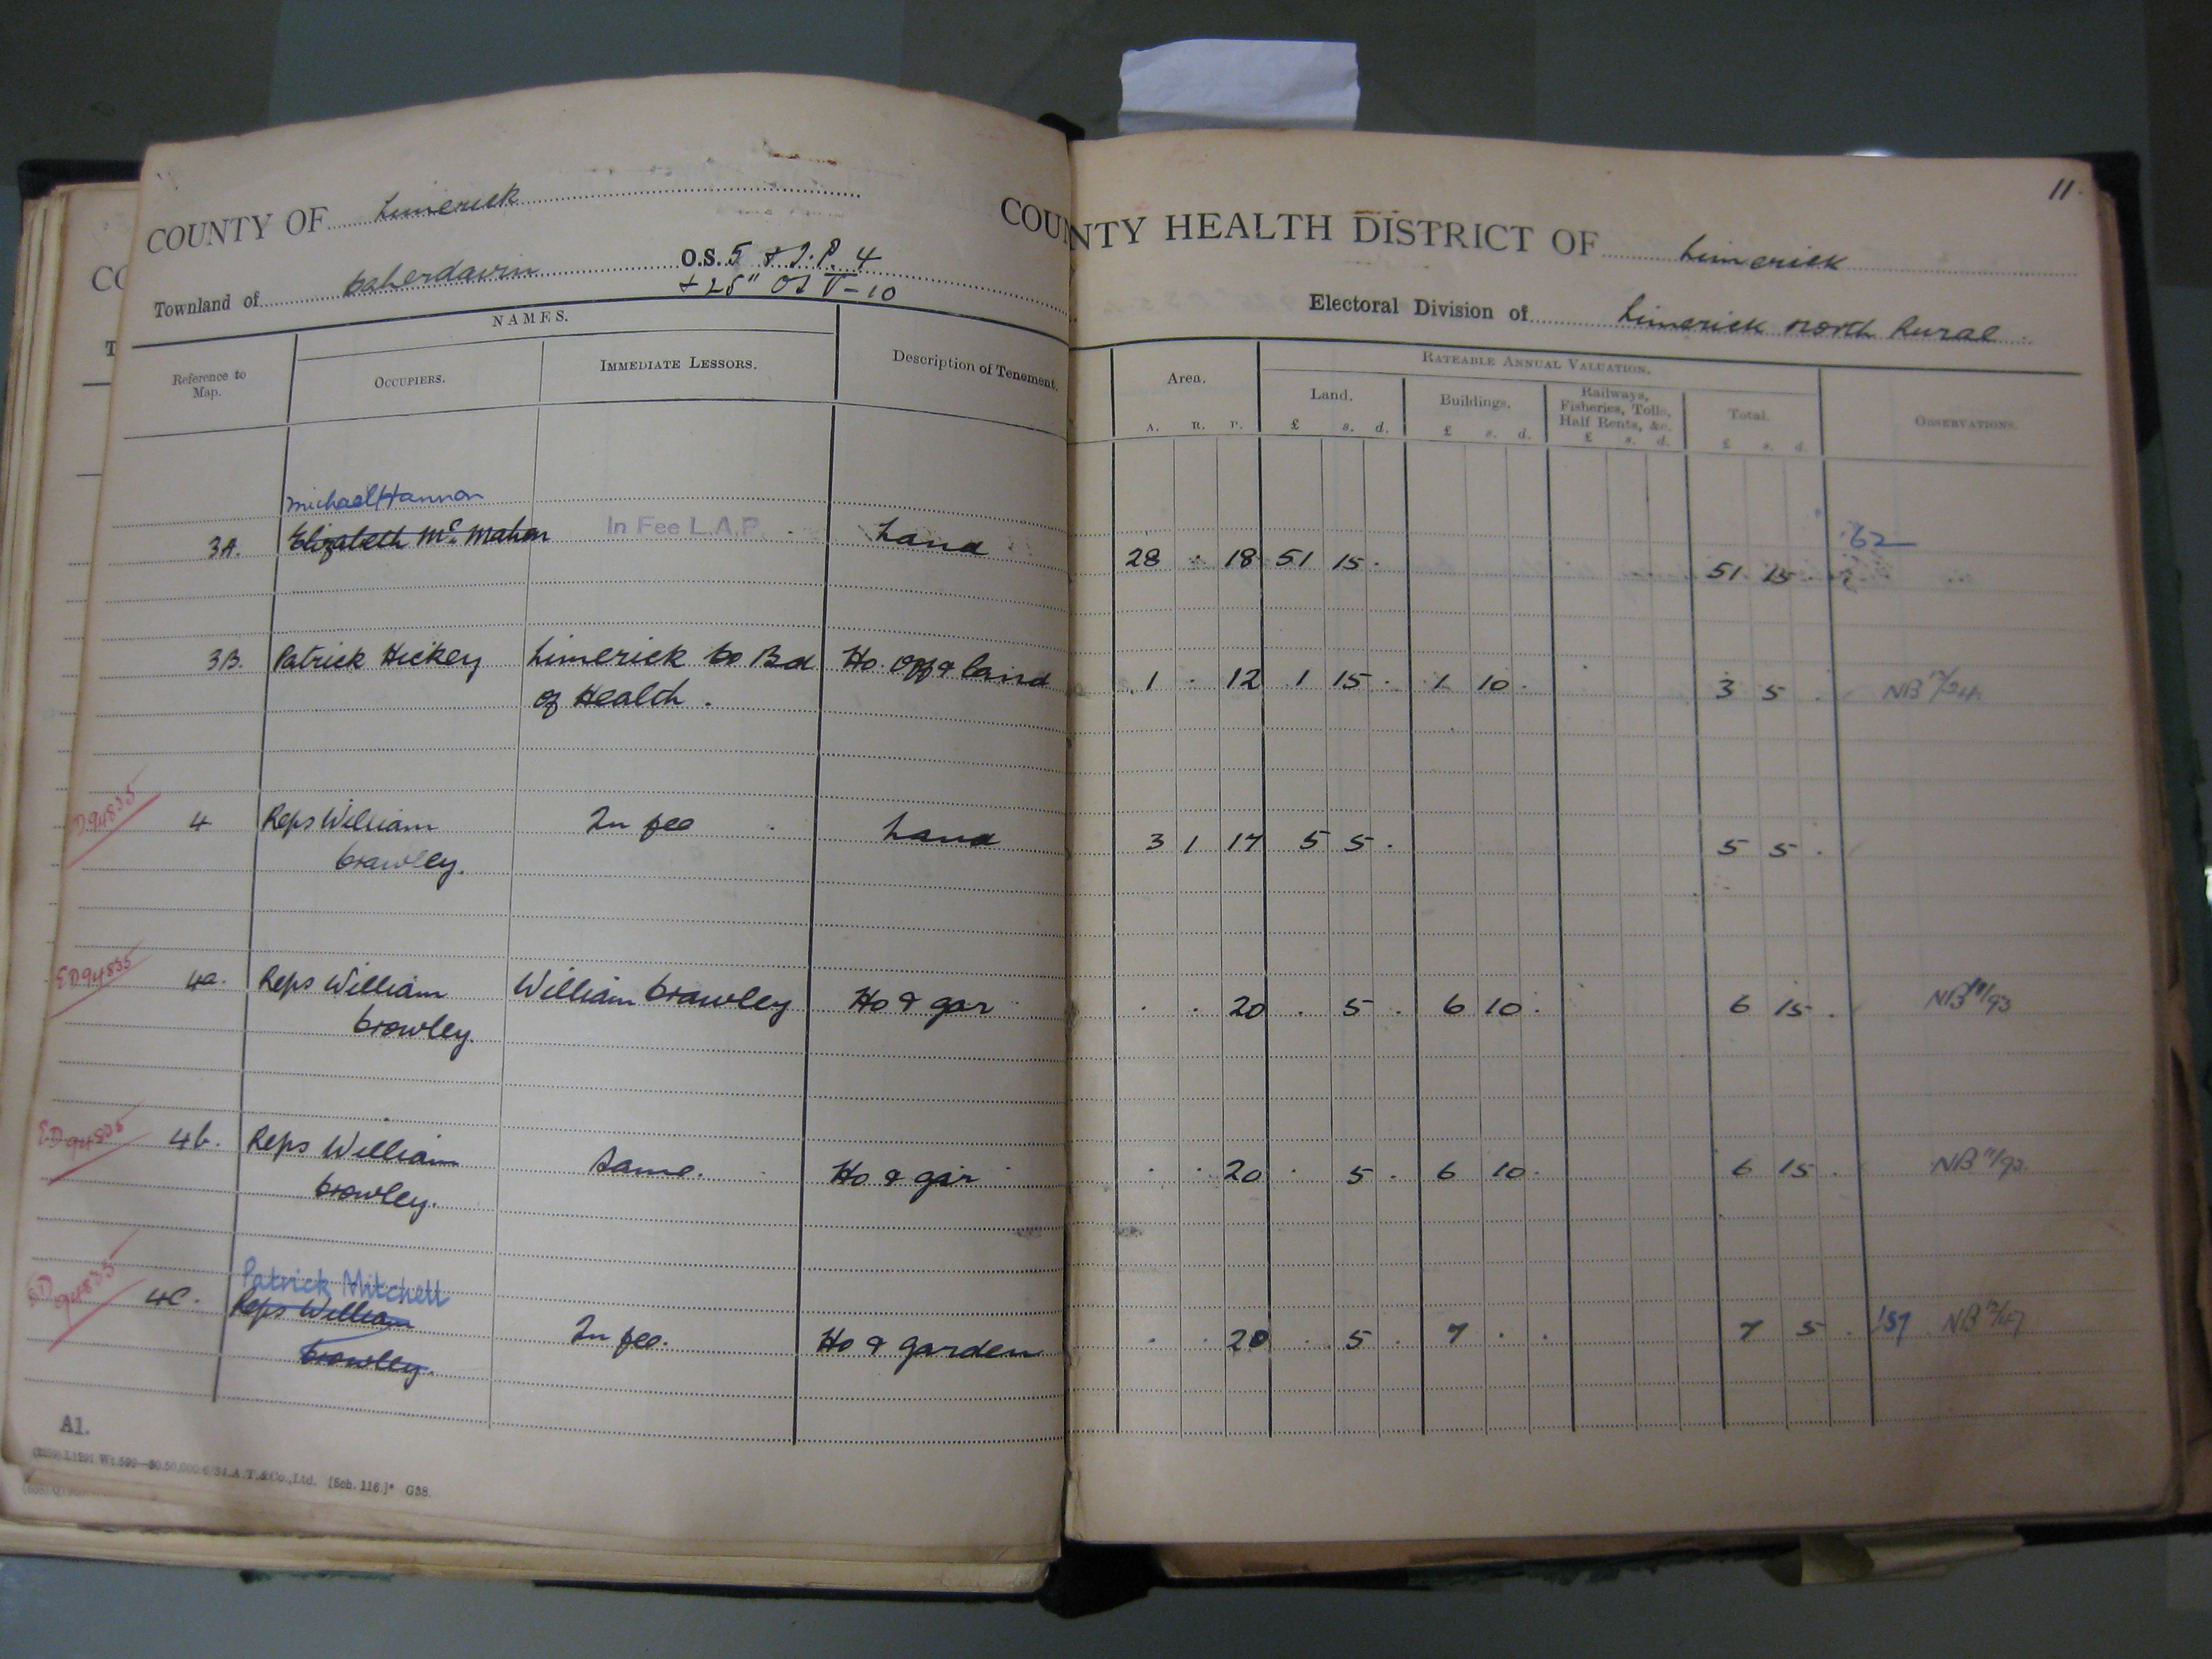 11.
COUNTY OF Limerick
COUNTY HEALTH DISTRICT OF Limerick
Townland of Caherdavin O.S. 5 & I.P. 4
+ 25" OS V-10
Electoral Division of Limerick North Rural.
Reference to Map.
NAMES.
OCCUPIERS.
IMMEDIATE LESSORS.
Description of Tenement.
Area.
A. R. P.
RATEABLE ANNUAL VALUATION.
Land.
£ s. d.
Buildings.
£ s. d.
Railways, Fisheries, Tolls, Half Rents, &c.
£ s. d.
Total.
£ s. d.
OBSERVATIONS.
Michael Hannon
3A. Elizabeth McMahon In Fee L.A.P. Land 28 . 18 51 15 . 51 15 . '62
3B. Patrick Hickey Limerick Co Bd Ho. off & land 1 . 12 1 15 . 1 10 . 3 5 . NB
of Health.
ED94835 4 Reps William In fee Land 3 1 17 5 5 . 5 5 .
Crowley.
ED94835 4a. Reps William William Crowley Ho & gar . . 20 . 5 . 6 10 . 6 15 . NB 11/93
Crowley.
ED94835 4b. Reps William Same. Ho & gar . . 20 . 5 . 6 10 . 6 15 . NB 11/93
Crowley.
Patrick Mitchell
ED94835 4c. Reps William In fee. Ho & garden . . 20 . 5 . 7 . . 7 5 . '57 NB
Crowley.
A1.
[Sch. 116.]* G38.